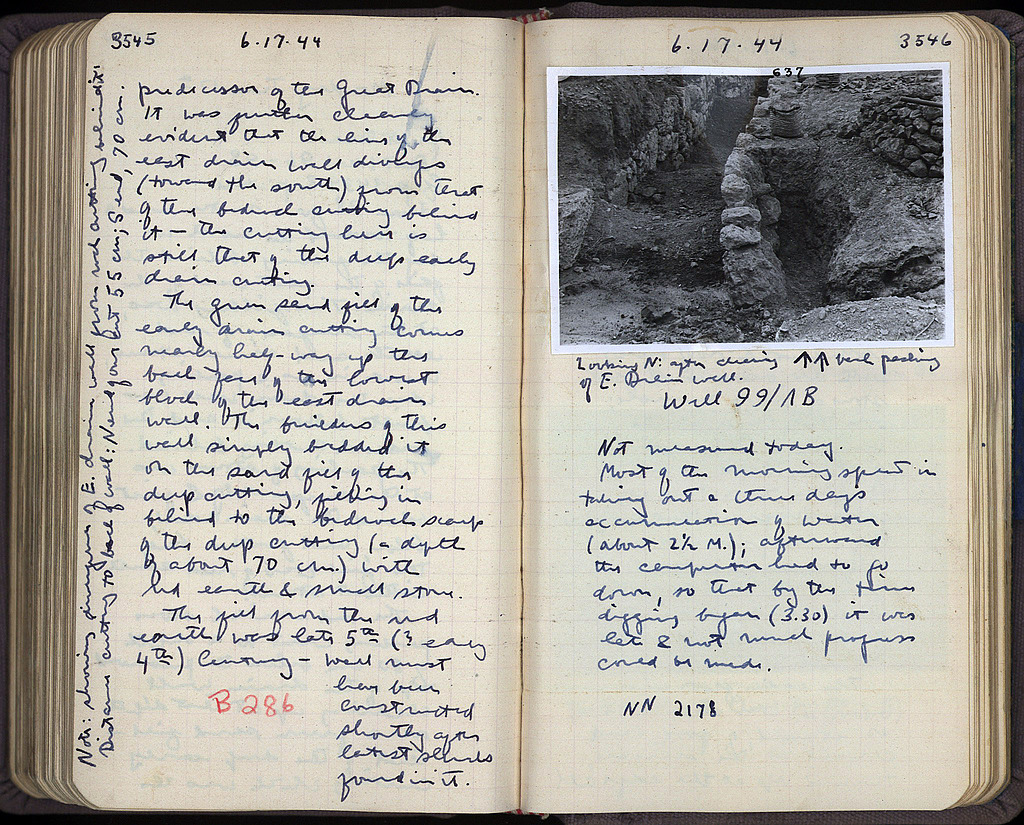 3545
6.17.44
predecessor of the Great Drain.
It was further clearly
evident that the line of the
east drain wall diverges
(toward the south) from that
of the bedrock cutting behind
it – the cutting here is
still that of the deep early
drain cutting.
The green sand fill of the
early drain cutting comes
nearly half-way up the
back face of the lowest
block of the east drain
wall. The builders of this
wall simply bedded it
on the sand fill of the
deep cutting, filling in
behind to the bedrock scarp
of the deep cutting (a depth
of about 70 cm.) with
red earth & small stone.
The fill from the red
earth was late 5th (? early
4th) Century – wall must
have been
constructed
shortly after
latest sherds
found in it.
B 286
Note: showing divergence of E. drain wall from rock cutting behind it.
Distance cutting to back of wall: N end of our cut 55 cm; S end, 70 cm.
6.17.44
3546
637
Looking N: after clearing ↑↑ back packing
of E. Drain wall.
Well 99/ΛB
Not measured today.
Most of the morning spent in
taking out a three days
accumulation of water
(about 2½ M.); afterward
the compressor had to go
down, so that by the time
digging began (3.30) it was
late & not much progress
could be made.
NN 2178